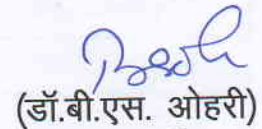 (डॉ.बी.एस. ओहरी)